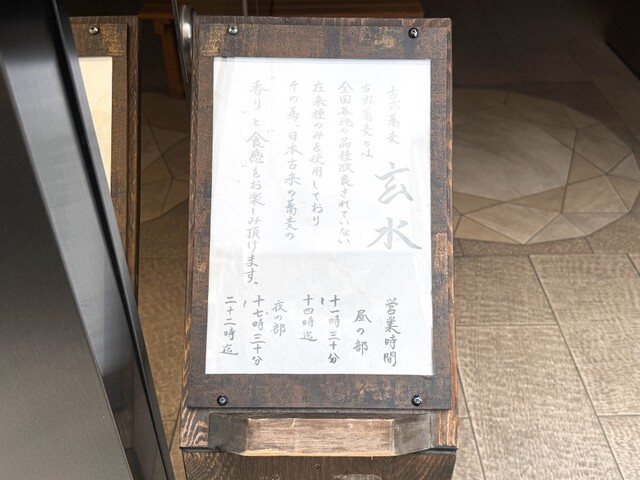 古式蕎麦
玄水
古式蕎麦とは
全国各地の品種改良されていない
在来種のみを使用しており
その為、日本古来の蕎麦の
香りと食感をお楽しみ頂けます、
営業時間
昼の部
十一時三十分
〜
十四時迄
夜の部
十七時三十分
〜
二十二時迄